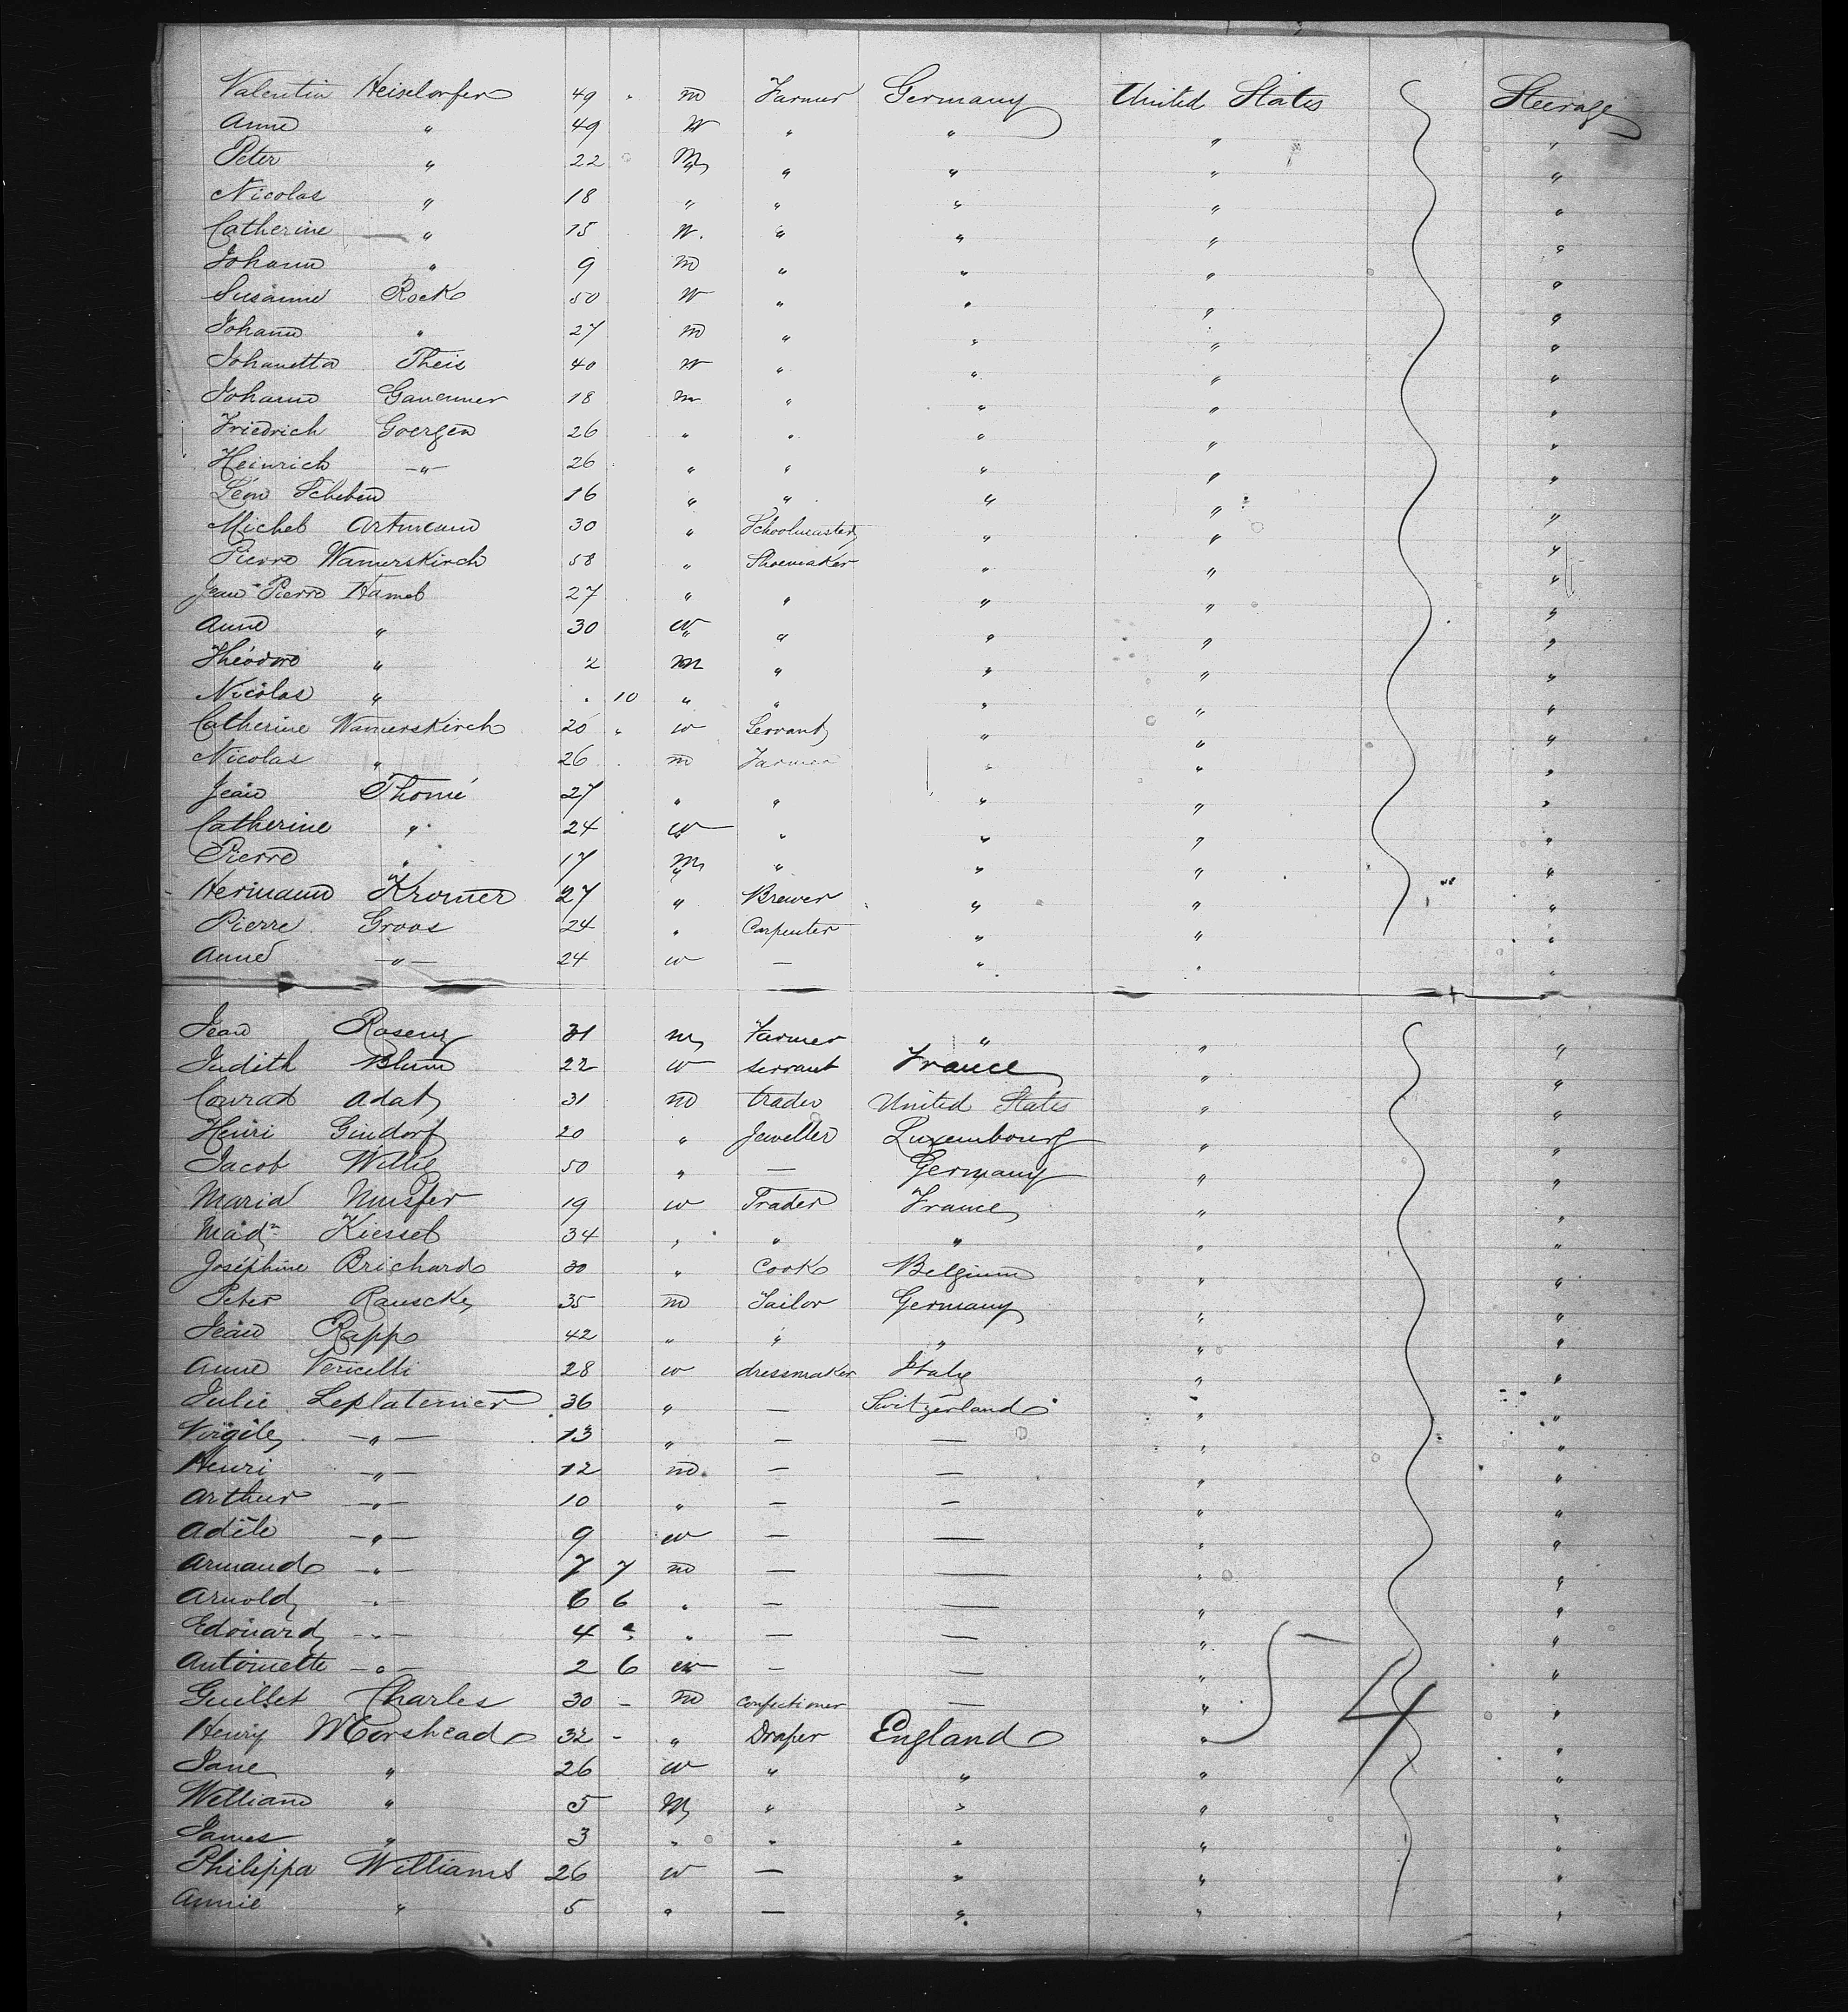 Valentin Heiselorfer 49 " m Farmer Germany United States Steerage
Anne " 49 W " " " "
Peter " 22 M " " " "
Nicolas " 18 " " " " "
Catherine " 15 W. " " " "
Johann " 9 m " " " "
Susanne Rock 50 W " " " "
Johann " 27 m " " " "
Johanetta Theis 40 W " " " "
Johann 18 m " " " "
Friedrich Goergen 26 " " " " "
Heinrich -"- 26 " " " " "
Léon Scheben 16 " " " " "
Michel Artmann 30 " Schoolmaster " " "
Pierre Wamerskirch 58 " Shoemaker " " "
Jean-Pierre Hamel 27 " " " " "
Anne " 30 W " " " "
Théodore " 2 m " " " "
Nicolas " . 10 " " " " "
Catherine Wamerskirch 20 " w Servant " " "
Nicolas " 26 m Farmer " " "
Jean Thomé 27 " " " " "
Catherine " 24 w " " " "
Pierre " 17 m " " " "
Hermann Kromer 27 " Brewer " " "
Pierre Groos 24 " Carpenter " " "
Anne -"- 24 w — " " "
Jean Roseng 31 m Farmer " " "
Judith Blum 22 w servant France " "
Conrad Adat 31 m trader United States " "
Henri Gindorf 20 " Jeweller Luxembourg " "
Jacob Willie 50 " — Germany " "
Maria 19 w Trader France " "
Mad. Kiessel 34 " " " " "
Joséphine Brichard 30 " Cook Belgium " "
Peter Rauscke 35 m Tailor Germany " "
Jean Rapp 42 " " " " "
Anne Vericelli 28 w dressmaker Italy " "
Julie Leplatenier 36 " — Switzerland " "
Virgile -"- 13 " — — " "
Henri -"- 12 m — — " "
Arthur -"- 10 " — — " "
Adèle -"- 9 w — — " "
Armand -"- 7 7 m — — " "
Arnold -"- 6 6 " — — " "
Edouard -"- 4 " " — — " "
Antoinette -"- 2 6 w — — " "
Guillet Charles 30 - m confectioner — " "
Henry Morshead 32 - " Draper England " "
Jane " 26 w " " " "
William " 5 M " " " "
James " 3 " " " " "
Philippa Williams 26 w — " " "
Annie " 5 " — " " "
54